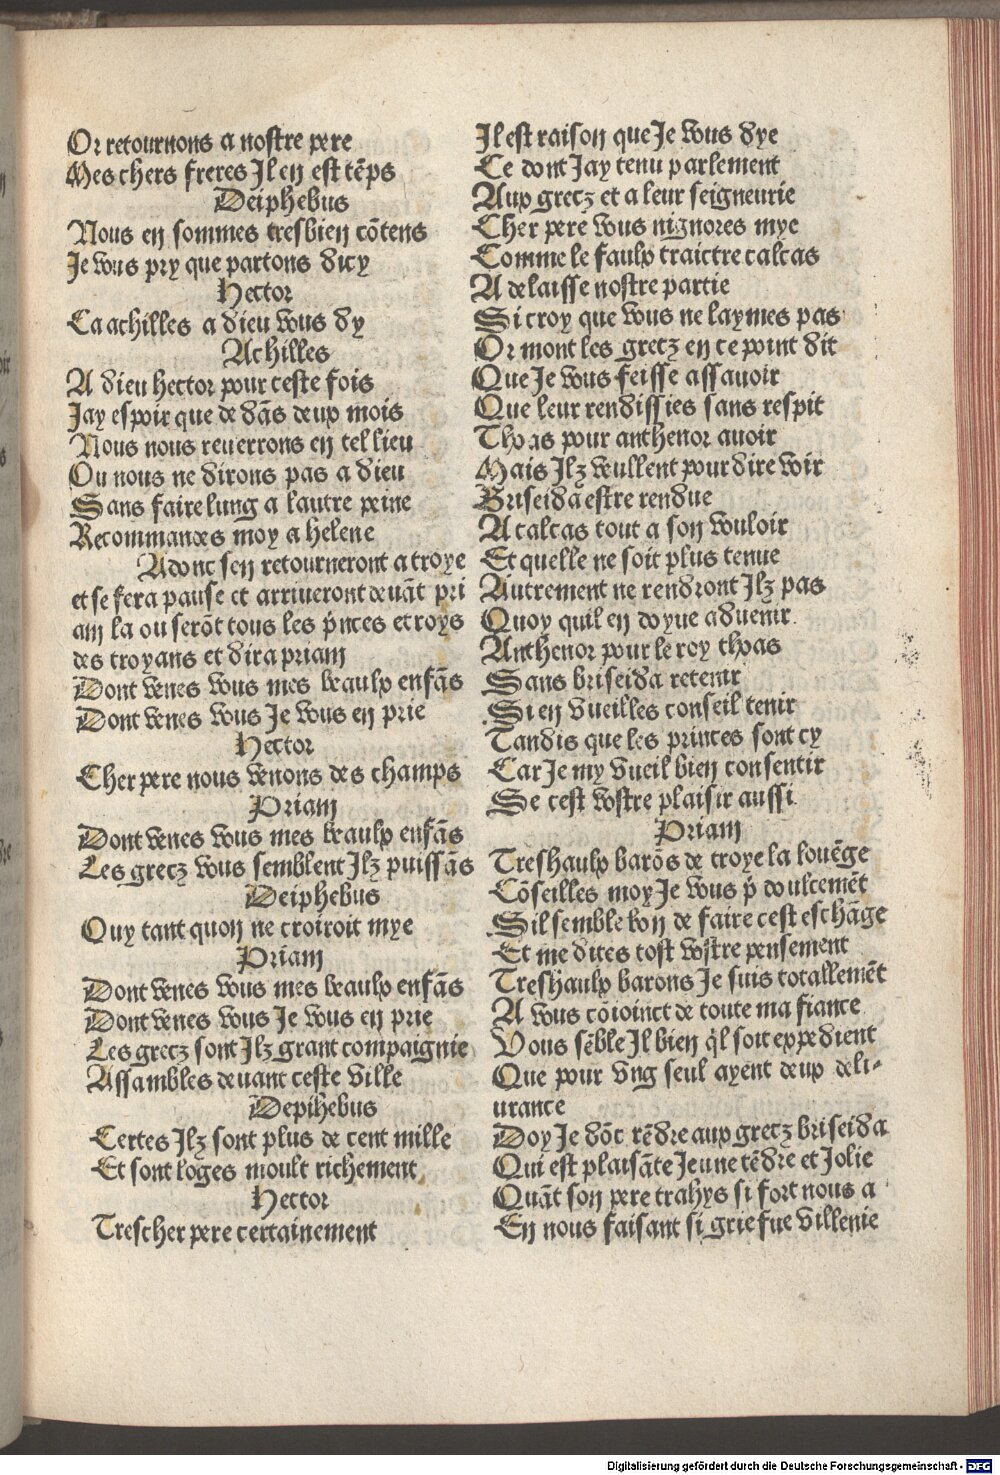 Or retournons a nostre pere
Mes chers freres Il en est tēps
Deiphebus
Nous en sommes tresbien cōtens
Je vous pry que partons dicy
Hector
Ca achilles a dieu vous dy
Achilles
A dieu hector pour ceste fois
Jay espoir que de dās deux mois
Nous nous reuerrons en tel lieu
Ou nous ne dirons pas a dieu
Sans faire lung a lautre peine
Recommandes moy a helene
Adonc sen retourneront a troye
et se fera pause et arriueront deuāt pri
am la ou serōt tous les p̄nces et roys
des troyans et dira priam
Dont venes vous mes beaulx enfās
Dont venes vous Je vous en prie
Hector
Cher pere nous venons des champs
Priam
Dont venes vous mes beaulx enfās
Les grecz vous semblent Ilz puissās
Deiphebus
Ouy tant quon ne croiroit mye
Priam
Dont venes vous mes beaulx enfās
Dont venes vous Je vous en prie
Les grecz sont Ilz grant compaignie
Assambles deuant ceste ville
Depihebus
Certes Ilz sont plus de cent mille
Et sont loges moult richement
Hector
Trescher pere certainement
Il est raison que Je vous dye
Ce dont Jay tenu parlement
Aux grecz et a leur seigneurie
Cher pere vous nignores mye
Comme le faulx traictre calcas
A delaisse nostre partie
Si croy que vous ne laymes pas
Or mont les grecz en ce point dit
Que Je vous feisse assauoir
Que leur rendissies sans respit
Thoas pour anthenor auoir
Mais Ilz veullent pour dire voir
Briseida estre rendue
A calcas tout a son vouloir
Et quelle ne soit plus tenue
Autrement ne rendront Ilz pas
Quoy quil en doyue aduenir
Anthenor pour le roy thoas
Sans briseida retenir
Si en vueilles conseil tenir
Tandis que les princes sont cy
Car Je my vueil bien consentir
Se cest vostre plaisir aussi
Priam
Treshaulx barōs de troye la louēge
Cōseilles moy Je vous p̄ doulcemēt
Sil semble bon de faire cest eschāge
Et me dites tost vostre pensement
Treshaulx barons Je suis totallemēt
A vous cōioinct de toute ma fiance
Vous sēble Il bien q̄l soit expedient
Que pour vng seul ayent deux deli-
urance
Doy Je dōc rēdre aux grecz briseida
Qui est plaisāte Jeune tēdre et Jolie
Quāt son pere trahys si fort nous a
En nous faisant si griefue villenie
Digitalisierung gefördert durch die Deutsche Forschungsgemeinschaft - DFG